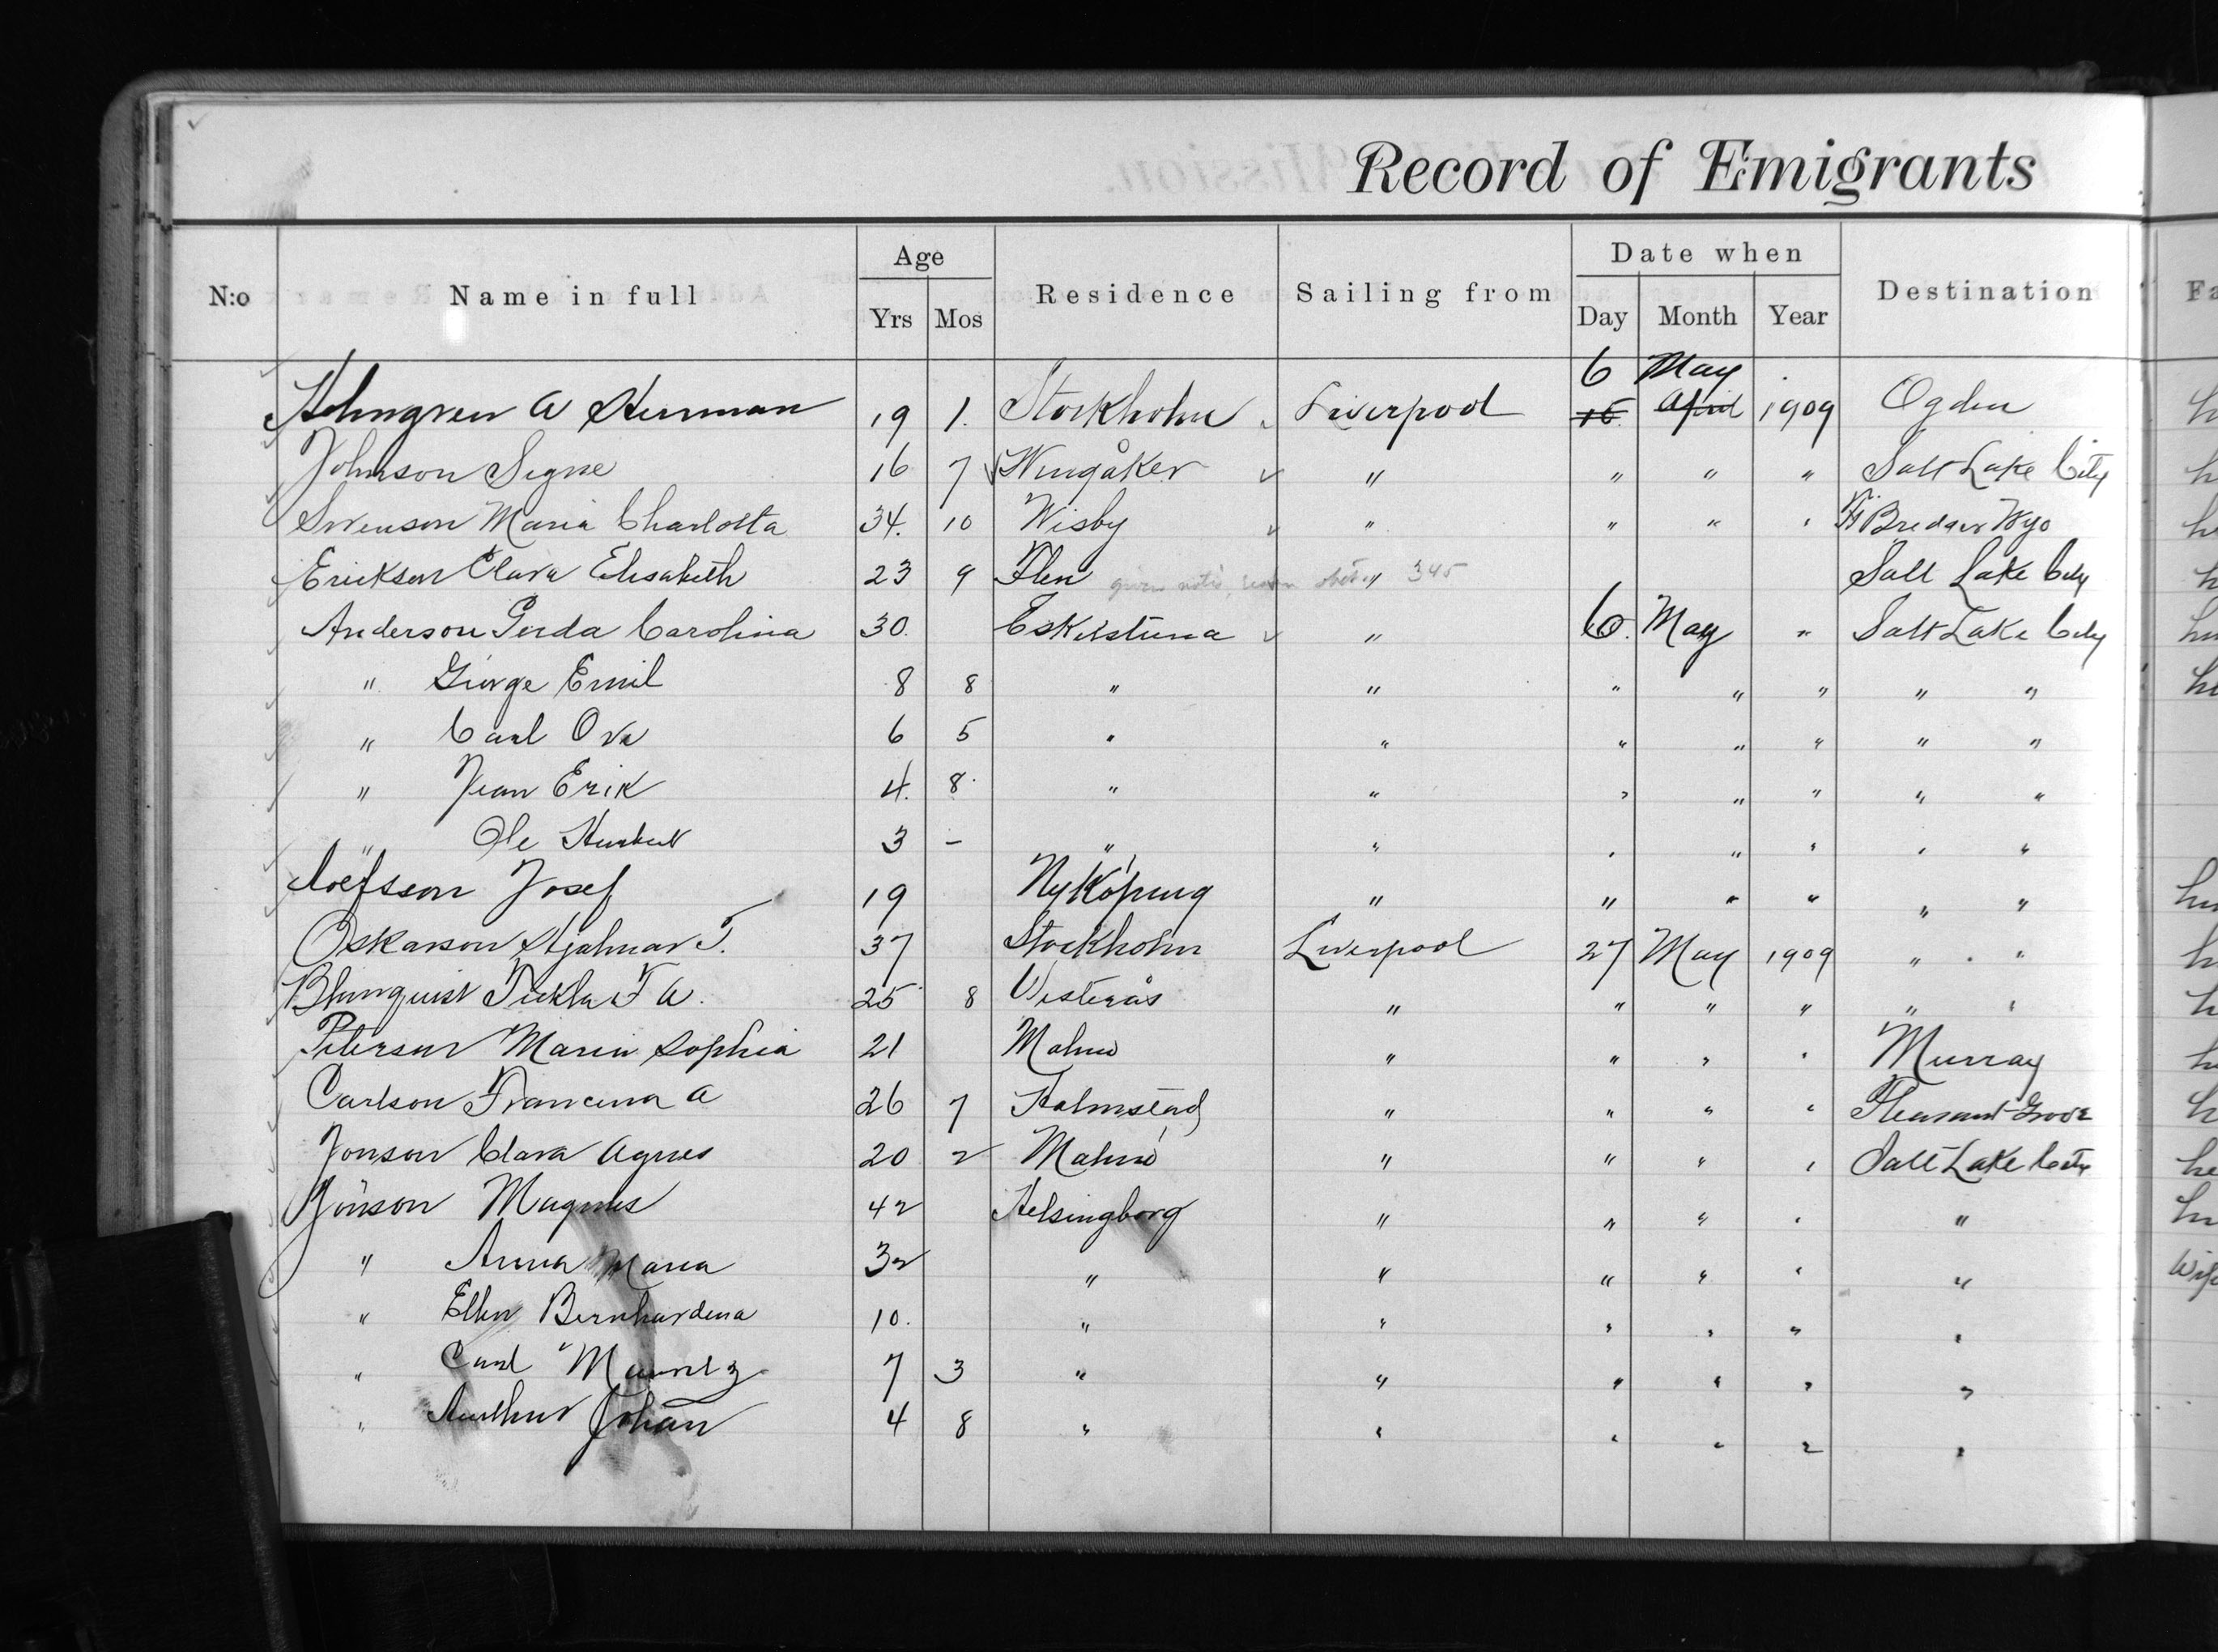 Record of Emigrants
N:o Name in full Age Residence Sailing from Date when Destination
Yrs Mos Day Month Year
6 May
Holmgren A Herman 19 1. Stockholm Liverpool 15 April 1909 Ogden
Johnson Signe 16 7 Wingåker " " " " Salt Lake City
Svenson Maria Charlotta 34. 10 Wisby " " " " Ft Bredger Wyo
Erickson Clara Elisabeth 23 9 Flen " 345 Salt Lake City
Anderson Gerda Carolina 30. Eskilstuna " 6. May " Salt Lake City
" George Emil 8 8 " " " " " " "
" Carl Ove 6 5 " " " " " " "
" Jean Erik 4. 8 " " " " " " "
" Ole Herbert 3 - " " " " " " "
Josef 19 Nyköping " " " " " "
Oskarson Hjalmar T. 37 Stockholm Liverpool 27 May 1909 " "
Blomquist Tekla F A. 25 8 Westerås " " " " " "
Peterson Maria Sophia 21 Malmö " " " " Murray
Carlson Francina A 26 7 Halmstad " " " " Pleasant Grove
Jonson Clara Agnes 20 2 Malmö " " " " Salt Lake City
Jönson Magnus 42 Helsingborg " " " " "
" Anna Maria 32 " " " " " "
" Ellen Bernhardina 10. " " " " " "
" Carl Mauritz 7 3 " " " " " "
" Arthur Johan 4 8 " " " " " "